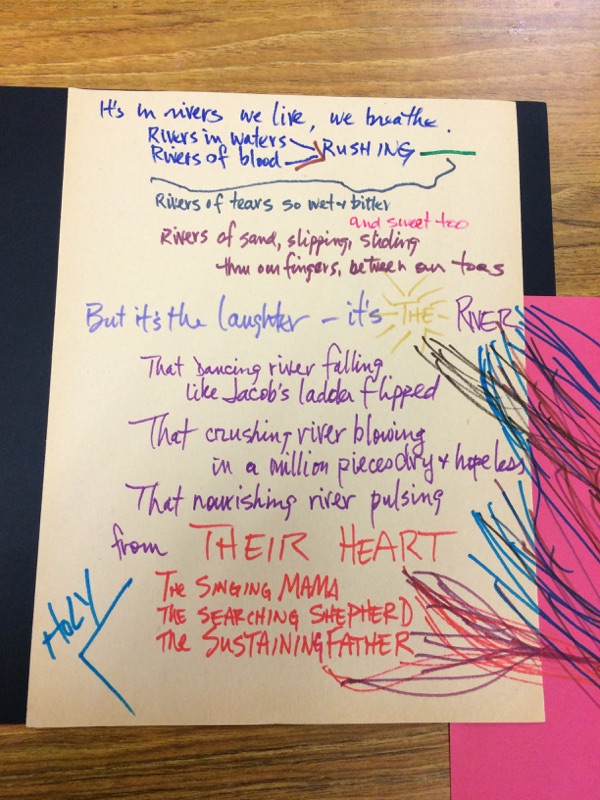 It's in rivers we live, we breathe.
Rivers in waters
Rivers of blood
RUSHING
Rivers of tears so wet + bitter
and sweet too
Rivers of sand, slipping, sliding
thru our fingers, between our toes
But it's the laughter - it's THE RIVER
That dancing river falling
like Jacob's ladder flipped
That crushing river blowing
in a million pieces dry + hopeless
That nourishing river pulsing
from THEIR HEART
The SINGING MAMA
THE SEARCHING SHEPHERD
The SUSTAINING FATHER
HOLY